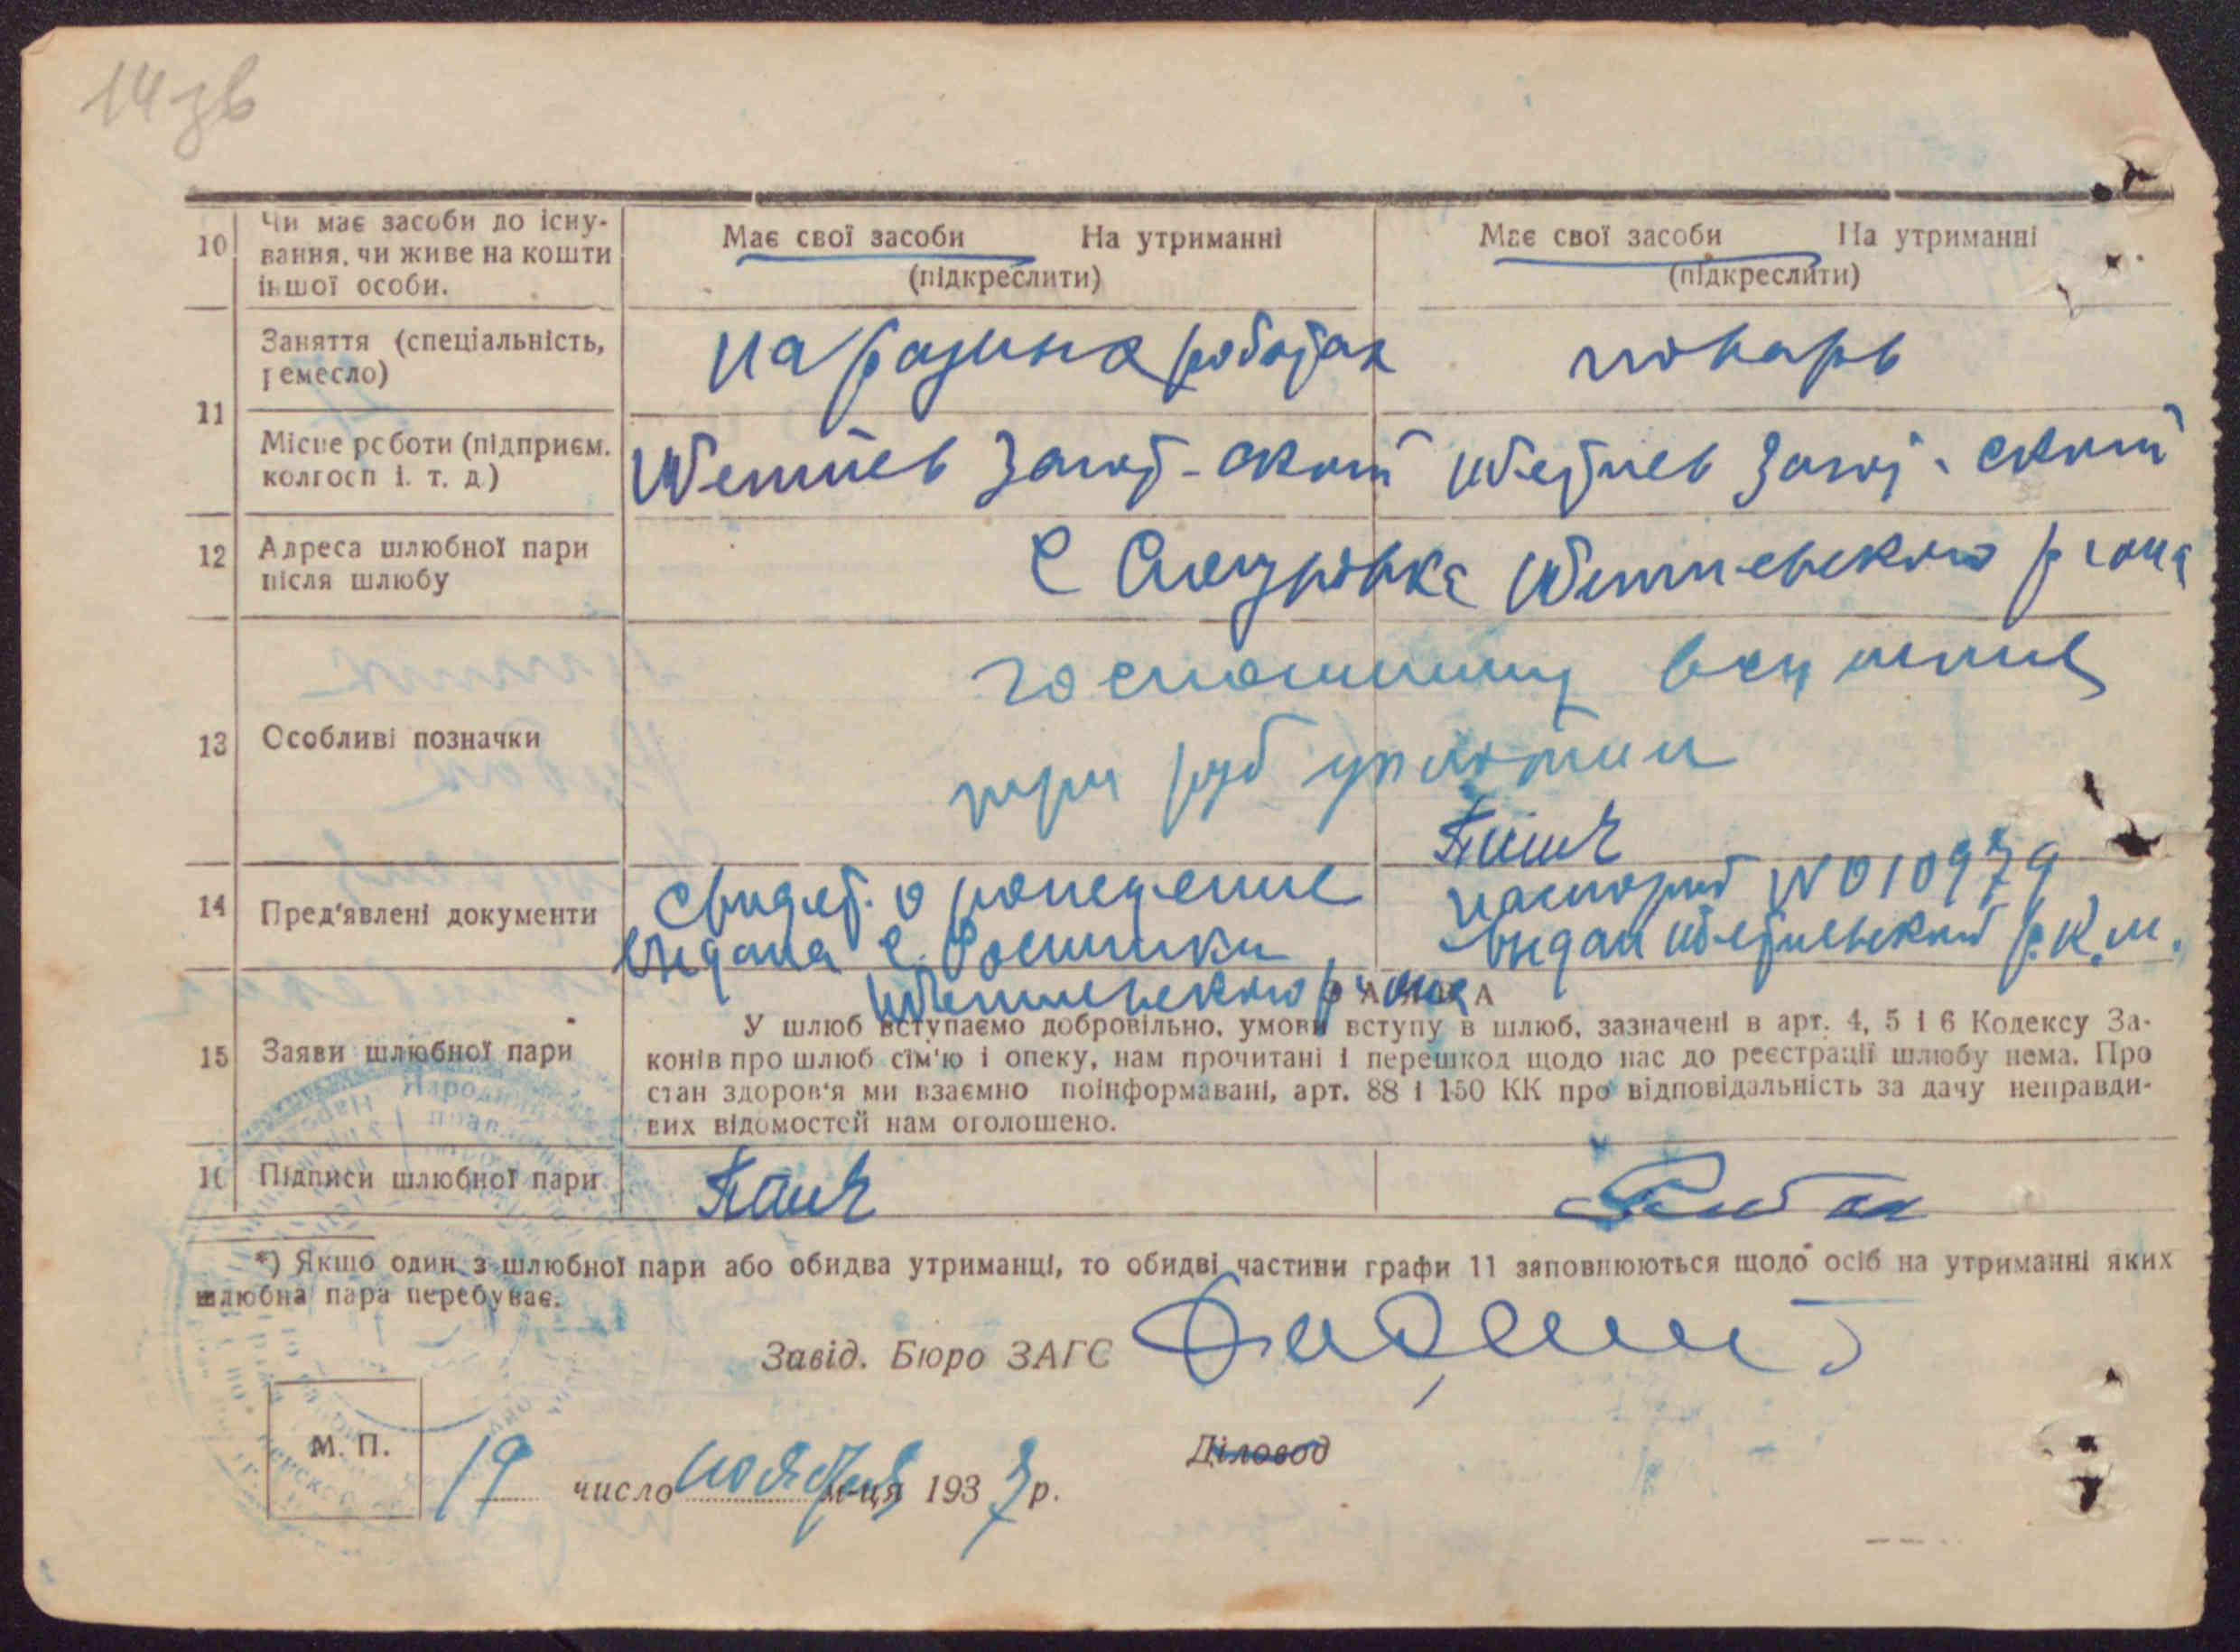 14 зв
10 Чи має засоби до існу-
вання, чи живе на кошти
іншої особи.
Має свої засоби На утриманні
(підкреслити)
Має свої засоби На утриманні
(підкреслити)
11 Заняття (спеціальність,
ремесло)
на разных работах
поварь
Місце роботи (підприєм.
колгосп і. т. д.)
загот-скот
загот-скот
12 Адреса шлюбної пари
після шлюбу
С
13 Особливі позначки
госпошлину
три руб уплотил
14 Пред'явлені документи
Свидет. о рождение
выдана с.
паспорт № 010979
выдан р.к.м.
ЗАЯВА
15 Заяви шлюбної пари
У шлюб вступаємо добровільно, умови вступу в шлюб, зазначені в арт. 4, 5 і 6 Кодексу За-
конів про шлюб сім'ю і опеку, нам прочитані і перешкод щодо нас до реєстрації шлюбу нема. Про
стан здоров'я ми взаємно поінформавані, арт. 88 і 150 КК про відповідальність за дачу неправди-
вих відомостей нам оголошено.
16 Підписи шлюбної пари
*) Якшо один з шлюбної пари або обидва утриманці, то обидві частини графи 11 заповнюються щодо осіб на утриманні яких
шлюбна пара перебуває.
Завід. Бюро ЗАГС
Діловод
М. П.
19 число ноября м-ця 1937 р.